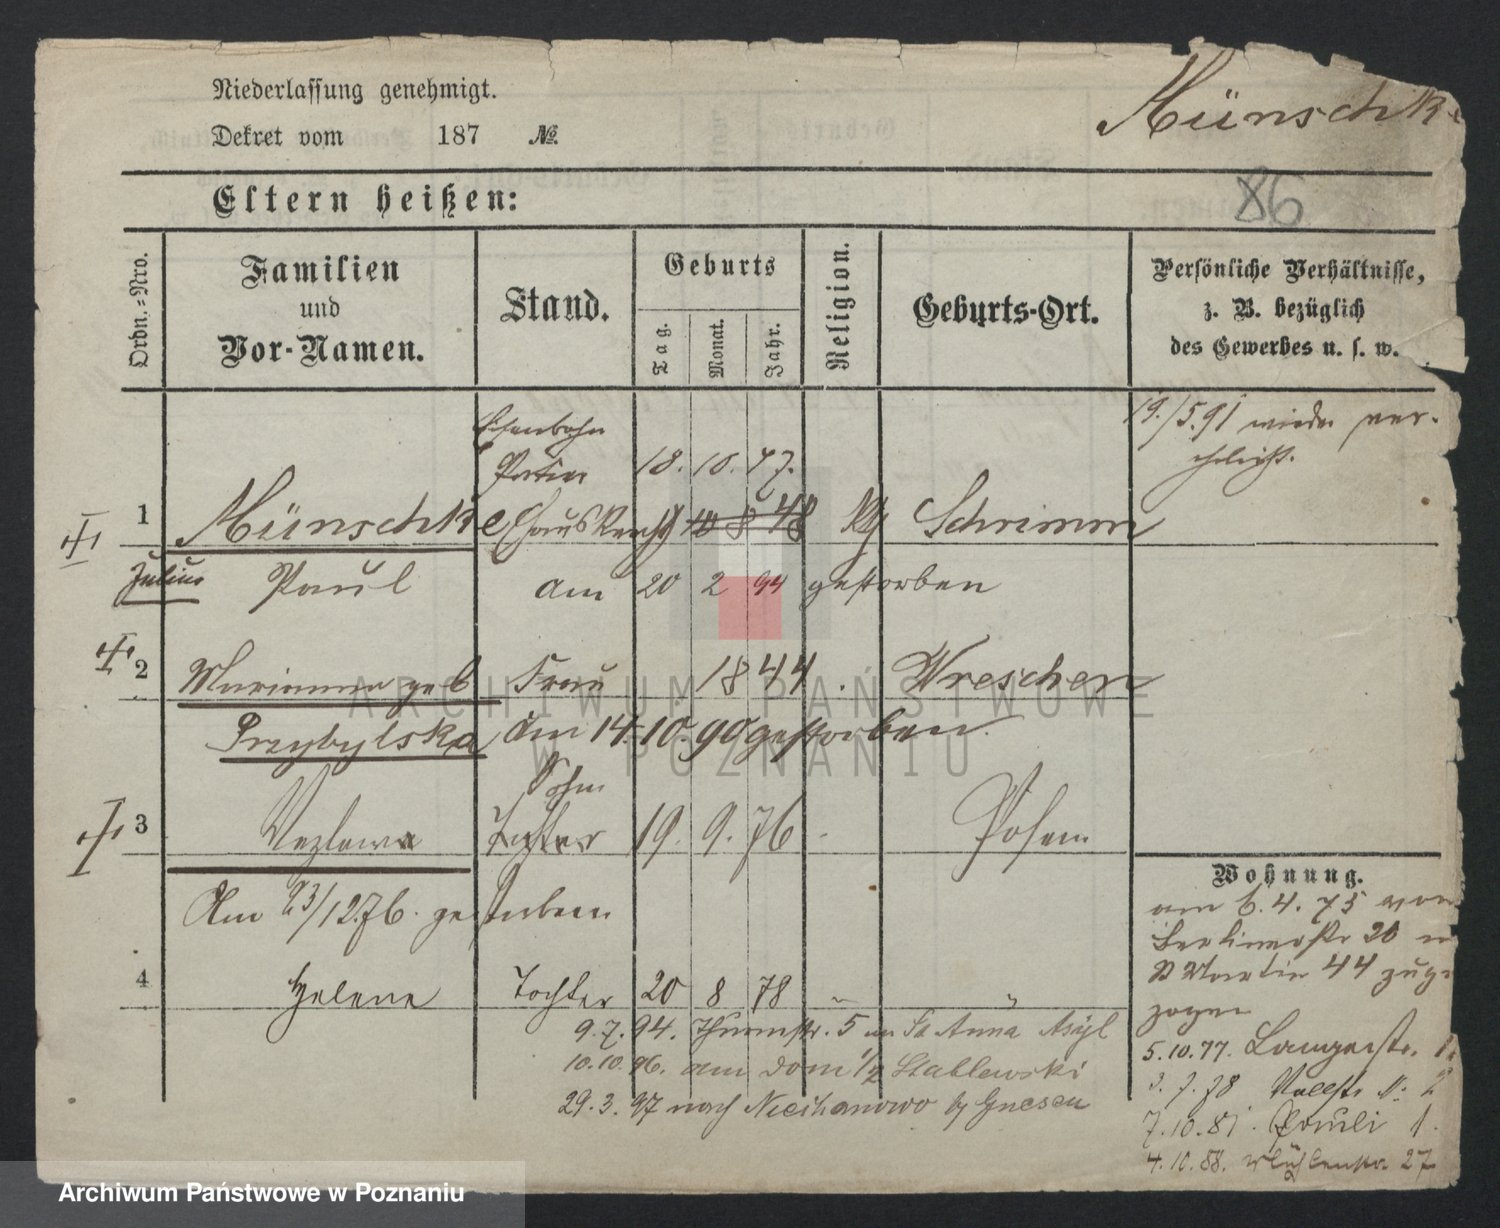 Niederlassung genehmigt.
Dekret vom 187 №.
Münschke
86
Eltern heißen:
Ordn.-Nro.
Familien und Vor-Namen.
Stand.
Geburts
Tag.
Monat.
Jahr.
Religion.
Geburts-Ort.
Persönliche Verhältnisse,
z. B. bezüglich
des Gewerbes u. s. w.
19./5.91 wieder ver-
ehelicht.
Eisenbahn
Portier 18. 10. 47.
1 Münschke Hausknecht 10 8 48 Kth Schrimm
Julius Paul am 20 2 94 gestorben
2 Marianna geb Frau 1844. Wreschen
Przybylska Am 14. 10. 90 gestorben.
Sohn
3 Tochter 19. 9. 76 - Posen
Am 23/12.76. gestorben
4 Helene Tochter 20 8 78 " "
9.7.94. Thurmstr. 5 im St Anna Asyl
10.10.96. am Dom 1/2 Stablewski
29.3.97 nach Niechanowo by Gnesen
Wohnung.
am 6.4.75 von
Berlinerstr 20 n
St Martin 44 zuge
zogen
5.10.77. Langestr.
3.7.78
7.10.81. Pauli 1.
4.10.88. Mühlenstr. 27
ARCHIWUM PAŃSTWOWE
W POZNANIU
Archiwum Państwowe w Poznaniu